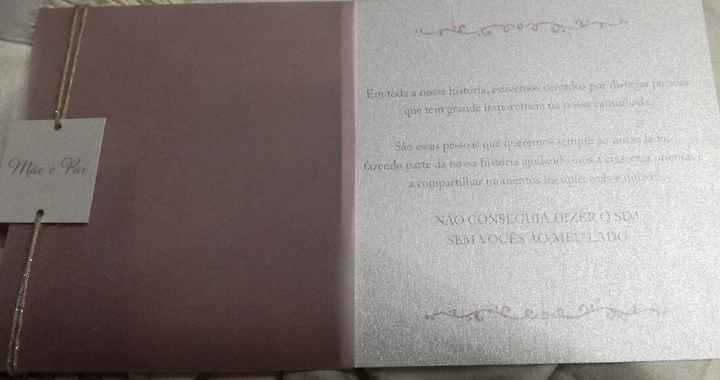 Mãe e Pai
Em toda a nossa história, estivemos rodeados por diversas pessoas
que tem grande importância na nossa caminhada.
São essas pessoas que queremos sempre ao nosso lado,
fazendo parte da nossa história ajudando-nos a crescer, a
a compartilhar momentos inesquecíveis e únicos.
NÃO CONSEGUIA DIZER O SIM
SEM VOCÊS AO MEU LADO